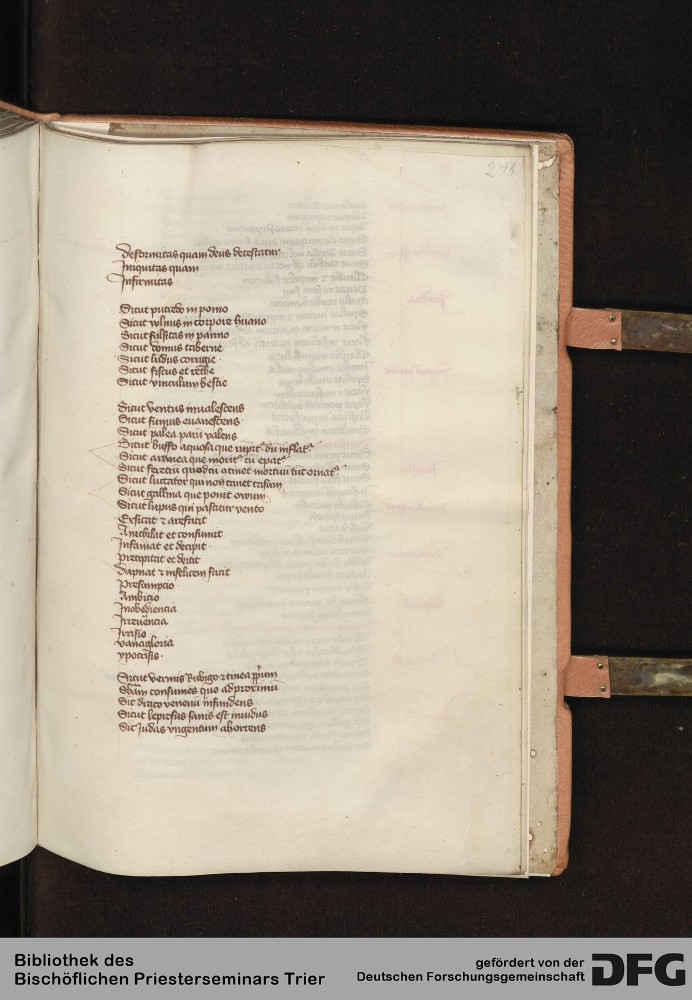 244
Deformitas quam deus detestatur
Iniquitas quam
Infirmitas
Sicut putredo in pomo
Sicut vulnus in corpore huano
Sicut falsitas in panno
Sicut domus taberne
Sicut ludus corrigie
Sicut fiscus et rethe
Sicut vinculum bestie
Sicut ventus inualescens
Sicut fumus euanescens
Sicut palea parū valens
Sicut buffo aquosa que rūpitᵘ dū inflatᵘ
Sicut aranea que moritᵘ cū
Sicut feretrū quod cū ꝯtinet mortuū tūc ornatᵘ
Sicut luctator qui non cauet casum
Sicut gallina que ponit owum
Sicut lupus qui pascitur vento
Exsiccat ⁊ arefacit
Anichilat et consumit
Infamat et decipit
Precipitat et deicit
Dapnat ⁊ infelicem facit
Presumpcio
Ambicio
Inobediencia
Irreuēcia
Irrisio
vanagloria
ypocrisis
Sicut vermis Rubigo ⁊ tinea ꝓprium
Sbām consumes quo ad proximū
Sic draco venenū infundens
Sicut leprosus sanis est inuidus
Sic Judas vngentum abhorrens
Bibliothek des
Bischöflichen Priesterseminars Trier
gefördert von der
Deutschen Forschungsgemeinschaft
DFG